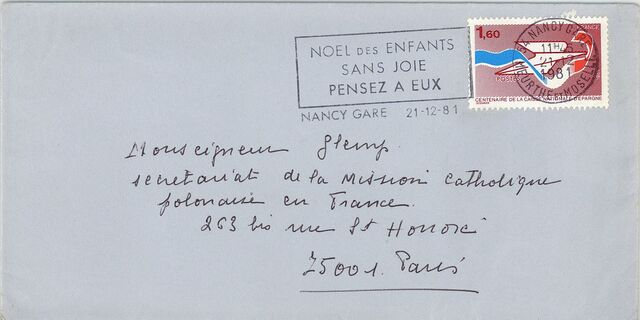 NOEL DES ENFANTS
SANS JOIE
PENSEZ A EUX
NANCY GARE 21-12-81
1,60
POSTES
FRANCE
54 NANCY GARE
21-12
1981
MEURTHE ET MOSELLE
CENTENAIRE DE LA CAISSE NATIONALE D'EPARGNE
Monseigneur Glemp
secretariat de la Mission Catholique
polonaise en France.
263 bis rue St Honoré
75001. Paris